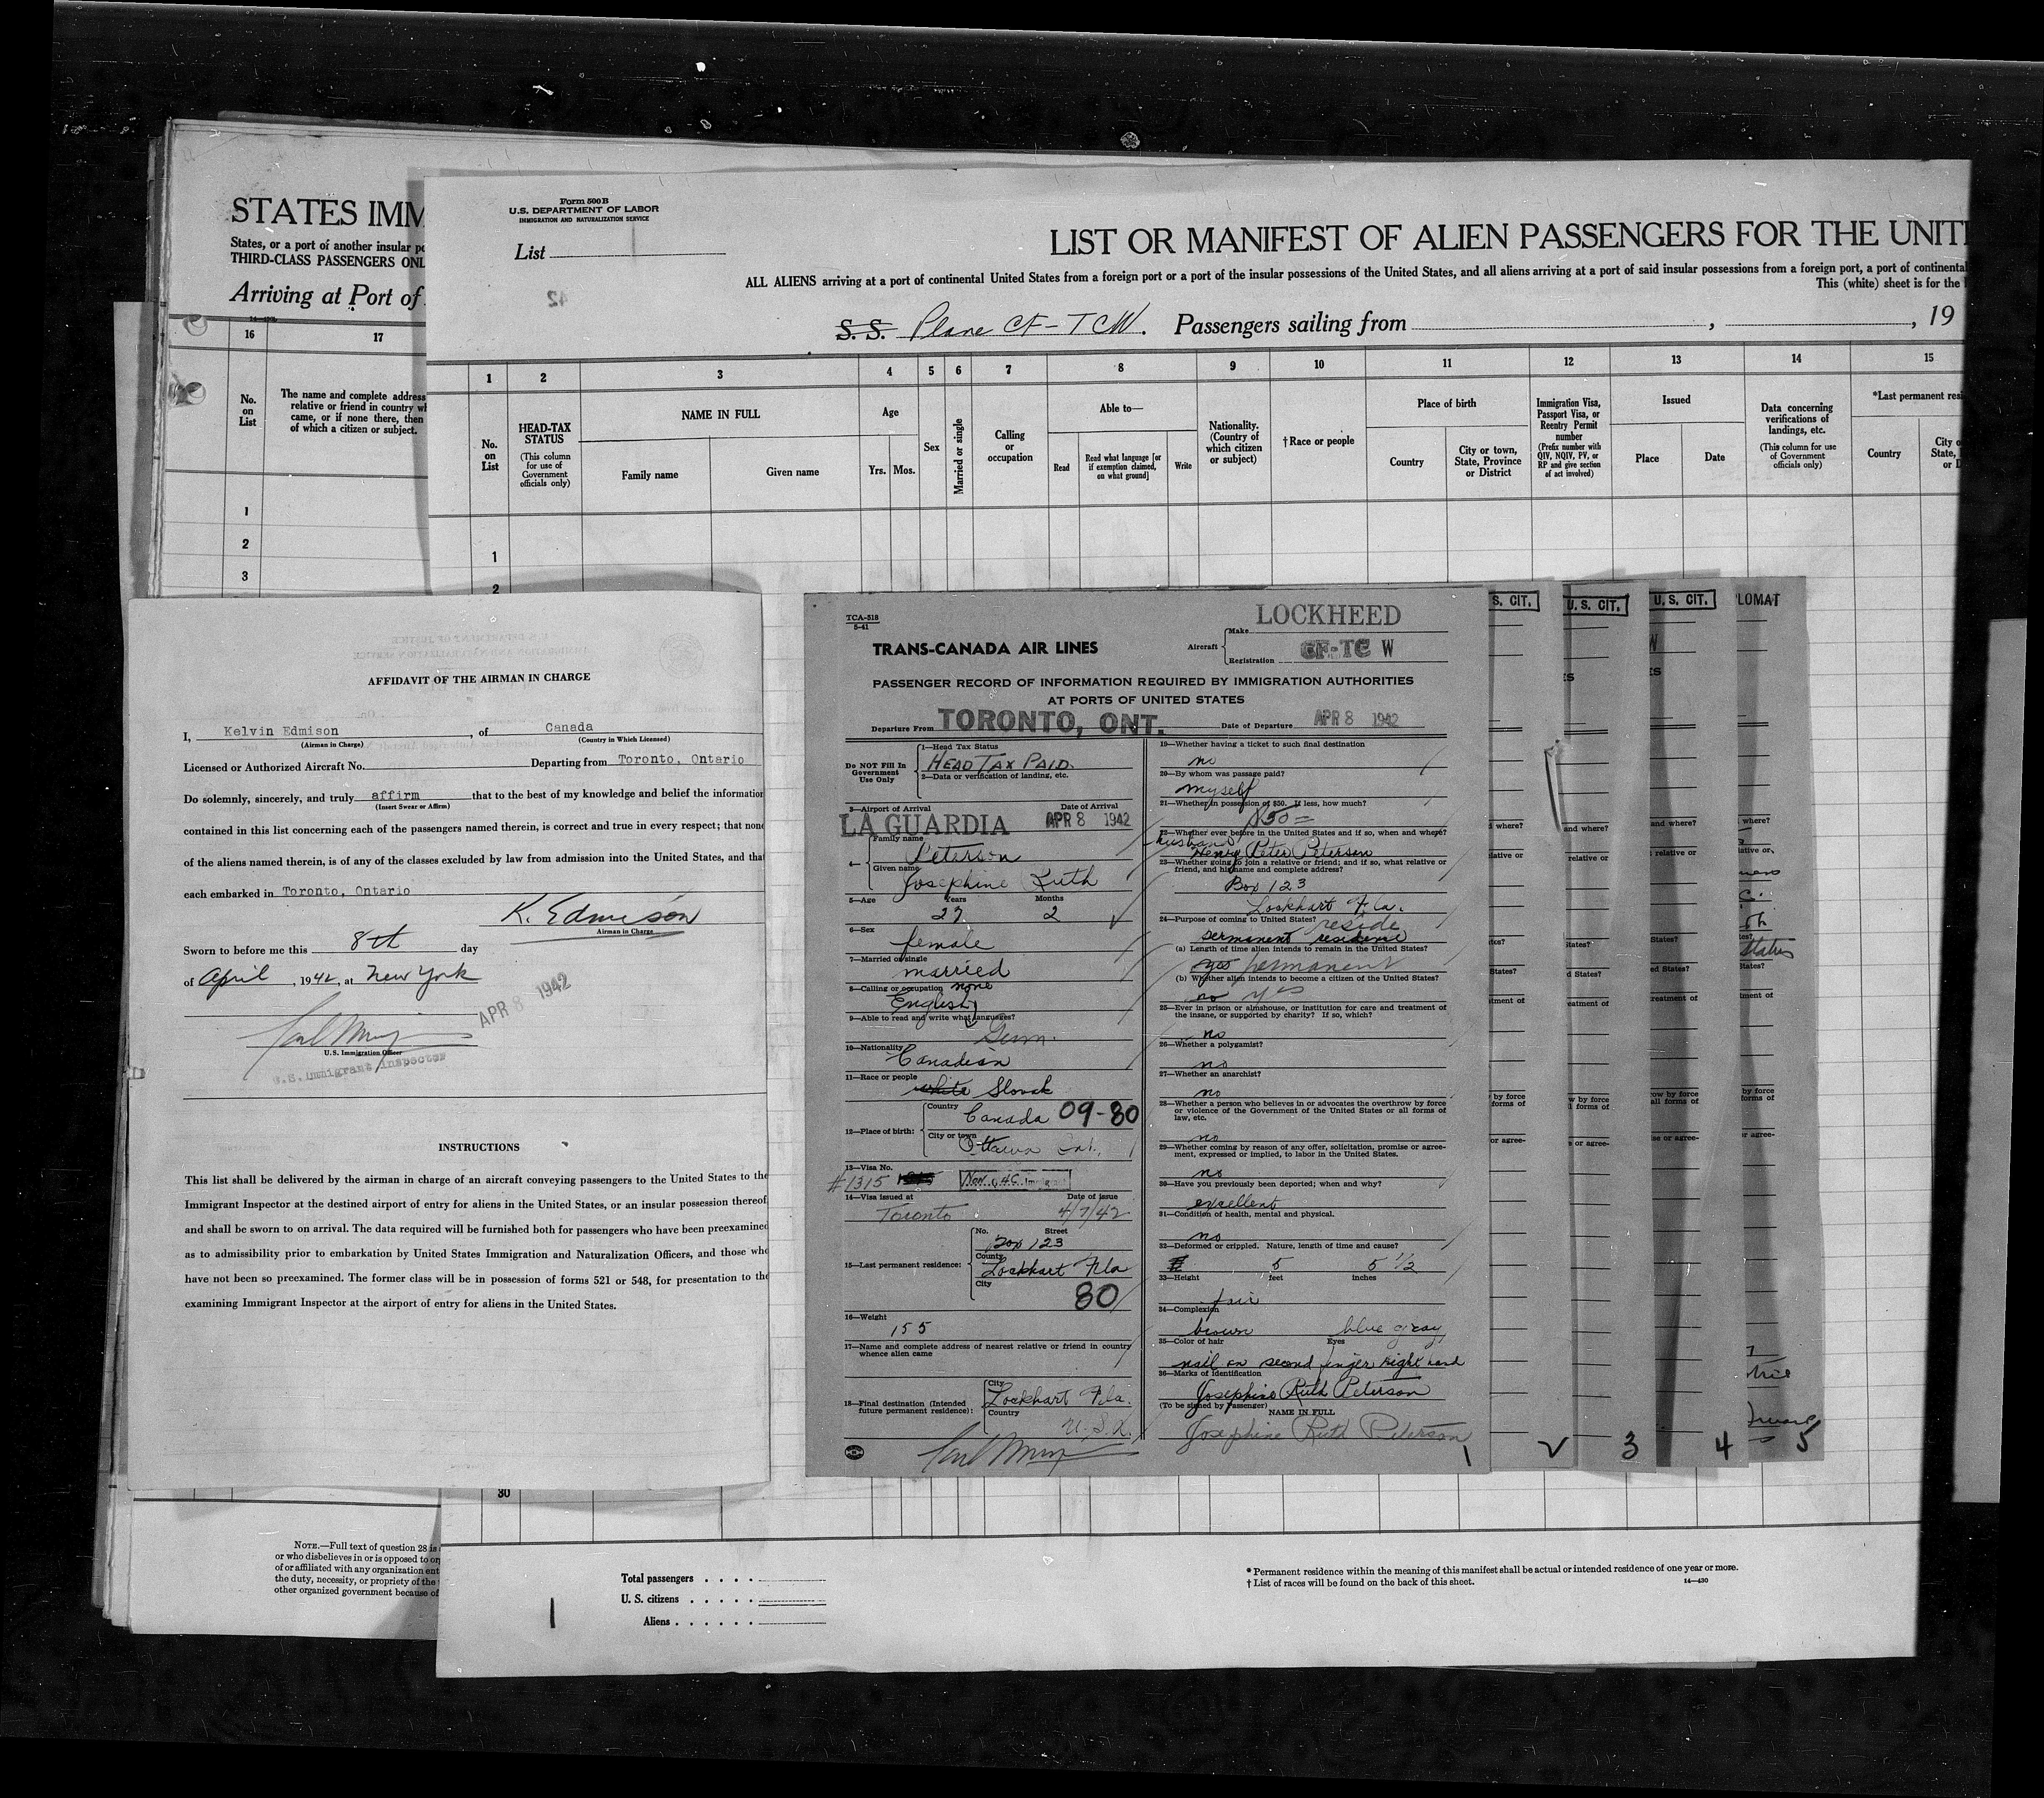 STATES IMM
States, or a port of another insular po
THIRD-CLASS PASSENGERS ONL
Arriving at Port of
16
17
No. on List
The name and complete address
relative or friend in country wh
came, or if none there, then
of which a citizen or subject.
1
2
3
Form 500 B
U.S. DEPARTMENT OF LABOR
IMMIGRATION AND NATURALIZATION SERVICE
List 1
LIST OR MANIFEST OF ALIEN PASSENGERS FOR THE UNIT
ALL ALIENS arriving at a port of continental United States from a foreign port or a port of the insular possessions of the United States, and all aliens arriving at a port of said insular possessions from a foreign port, a port of continental
This (white) sheet is for the
S. S. Plane CF-TCW. Passengers sailing from , , 19
1 2 3 4 5 6 7 8 9 10 11 12 13 14 15
No. on List
HEAD-TAX STATUS
(This column for use of Government officials only)
NAME IN FULL
Family name
Given name
Age
Yrs. Mos.
Sex
Married or single
Calling or occupation
Able to—
Read
Read what language [or if exemption claimed, on what ground]
Write
Nationality. (Country of which citizen or subject)
† Race or people
Place of birth
Country
City or town, State, Province or District
Immigration Visa, Passport Visa, or Reentry Permit number
(Prefix number with QIV, NQIV, PV, or RP and give section of act involved)
Issued
Place
Date
Data concerning verifications of landings, etc.
(This column for use of Government officials only)
*Last permanent resi
Country
City o
State,
or D
1
2
AFFIDAVIT OF THE AIRMAN IN CHARGE
I, Kelvin Edmison, of Canada
(Airman in Charge) (Country in Which Licensed)
Licensed or Authorized Aircraft No. Departing from Toronto, Ontario
Do solemnly, sincerely, and truly affirm that to the best of my knowledge and belief the information
(Insert Swear or Affirm)
contained in this list concerning each of the passengers named therein, is correct and true in every respect; that none
of the aliens named therein, is of any of the classes excluded by law from admission into the United States, and that
each embarked in Toronto, Ontario
K. Edmison
Airman in Charge
Sworn to before me this 8th day
of April, 1942, at New York
APR 8 1942
U.S. Immigration Officer
U.S. Immigrant Inspector
INSTRUCTIONS
This list shall be delivered by the airman in charge of an aircraft conveying passengers to the United States to the
Immigrant Inspector at the destined airport of entry for aliens in the United States, or an insular possession thereof
and shall be sworn to on arrival. The data required will be furnished both for passengers who have been preexamined
as to admissibility prior to embarkation by United States Immigration and Naturalization Officers, and those who
have not been so preexamined. The former class will be in possession of forms 521 or 548, for presentation to the
examining Immigrant Inspector at the airport of entry for aliens in the United States.
TCA-518
5-41
LOCKHEED
TRANS-CANADA AIR LINES
Aircraft Make
Registration CF-TC W
PASSENGER RECORD OF INFORMATION REQUIRED BY IMMIGRATION AUTHORITIES
AT PORTS OF UNITED STATES
Departure From TORONTO, ONT. Date of Departure APR 8 1942
Do NOT Fill In Government Use Only
1—Head Tax Status
HEAD TAX PAID.
2—Data or verification of landing, etc.
3—Airport of Arrival Date of Arrival
LA GUARDIA APR 8 1942
4— Family name
Peterson
Given name
Josephine Ruth
5—Age Years Months
27 2
6—Sex
female
7—Married or single
married
8—Calling or occupation none
English
9—Able to read and write what languages?
Germ.
10—Nationality
Canadian
11—Race or people
white Slovak
12—Place of birth: Country
Canada 09-80
City or town
Ottawa Ont.
13—Visa No.
#1315
14—Visa issued at Date of issue
Toronto 4/7/42
15—Last permanent residence: No. Street
Box 123
County
Lockhart Fla
City
80
16—Weight
155
17—Name and complete address of nearest relative or friend in country
whence alien came
18—Final destination (Intended future permanent residence): City
Lockhart Fla.
Country
U.S.A.
19—Whether having a ticket to such final destination
no
20—By whom was passage paid?
myself
21—Whether in possession of $50. If less, how much?
$50=
22—Whether ever before in the United States and if so, when and where?
husband
Henry Peter Peterson
23—Whether going to join a relative or friend; and if so, what relative or
friend, and his name and complete address?
Box 123
Lockhart Fla.
24—Purpose of coming to United States? reside
permanent residence
(a) Length of time alien intends to remain in the United States?
yes permanent
(b) Whether alien intends to become a citizen of the United States?
no yes
25—Ever in prison or almshouse, or institution for care and treatment of
the insane, or supported by charity? If so, which?
no
26—Whether a polygamist?
no
27—Whether an anarchist?
no
28—Whether a person who believes in or advocates the overthrow by force
or violence of the Government of the United States or all forms of
law, etc.
no
29—Whether coming by reason of any offer, solicitation, promise or agree-
ment, expressed or implied, to labor in the United States.
no
30—Have you previously been deported; when and why?
excellent
31—Condition of health, mental and physical.
no
32—Deformed or crippled. Nature, length of time and cause?
5 5 1/2
33—Height feet inches
fair
34—Complexion
brown blue gray
35—Color of hair Eyes
nail on second finger right hand
36—Marks of Identification
Josephine Ruth Peterson
(To be signed by Passenger) NAME IN FULL
Josephine Ruth Peterson
1
S. CIT.
U. S. CIT.
U. S. CIT.
LOMAT
2
3
4
5
30
NOTE.—Full text of question 28 is
or who disbelieves in or is opposed to or
of or affiliated with any organization ent
the duty, necessity, or propriety of the
other organized government because of
Total passengers . . . .
U. S. citizens . . . . .
Aliens . . . . . .
1
* Permanent residence within the meaning of this manifest shall be actual or intended residence of one year or more.
† List of races will be found on the back of this sheet.
14—430